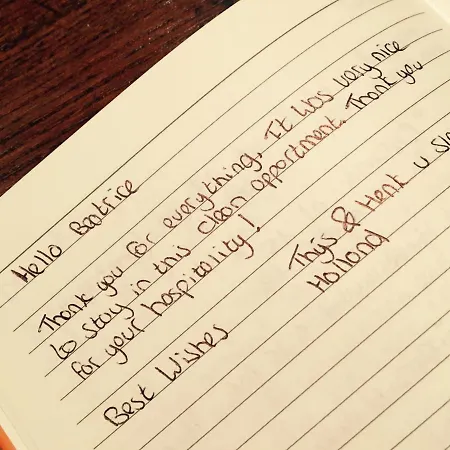 Hello Beatrice
Thank you for everything. It was very nice
to stay in this clean appartment. Thank you
for your hospitality!
Best Wishes
Thys & Henk
Holland